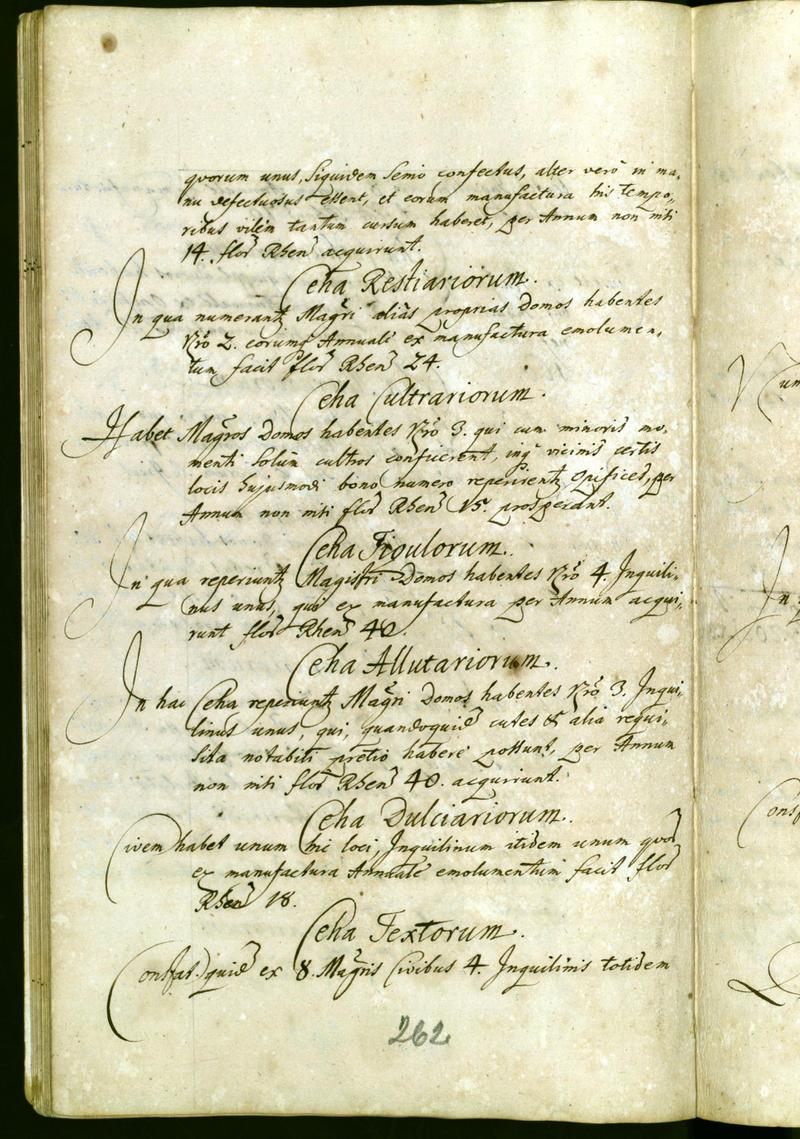 quorum unus, siquidem senio confectus, alter verò in ma„
nu defectuosus essent, et eorum manufactura his tempo„
ribus vilem tantum cursum haberet, per Annum non nisi
14. flor Rhen acquirunt.
Ceha Restiariorum.
In qua numerantq Magri aliàs proprias Domos habentes
Nrō 2. eorumq Annuale ex manufactura emolumen„
tum facit flor Rhen 24.
Ceha Cultrariorum.
Habet Magros Domos habentes Nrō 3. qui cum minoris mo„
menti solum cultros conficerent, inq vicinis certis
locis hujusmodi bono numero reperirentq Opifices, per
Annum non nisi flor Rhen 15. prosperant.
Ceha Figulorum.
In qua reperiuntq Magistri Domos habentes Nrō 4. Inquili„
nus unus, qui ex manufactura per Annum acqui„
runt flor Rhen 40.
Ceha Allutariorum.
In hac Ceha reperiuntq Magri Domos habentes Nrō 3. Inqui„
linus unus, qui, quandoquid cutes & alia requi„
sita notabili pretio habere possunt, per Annum
non nisi flor Rhen 40. acquirunt.
Ceha Dulciariorum.
Civem habet unum hic loci, Inquilinum itidem unum quor
ex manufactura Annuale emolumentum facit flor
Rhen 18.
Ceha Textorum.
Constat quid ex 8. Magris Civibus 4. Inquilinis totidem
262